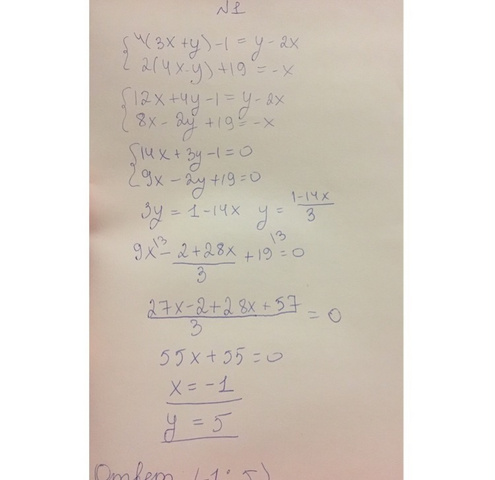 №1
{4(3x+y)-1=y-2x
2(4x-y)+19=-x
{12x+4y-1=y-2x
8x-2y+19=-x
{14x+3y-1=0
9x-2y+19=0
3y=1-14x y=\frac{1-14x}{3}
9x^{|3}-\frac{2+28x}{3}+19^{|3}=0
\frac{27x-2+28x+57}{3}=0
55x+55=0
x=-1
y=5
Ответ (-1; 5)